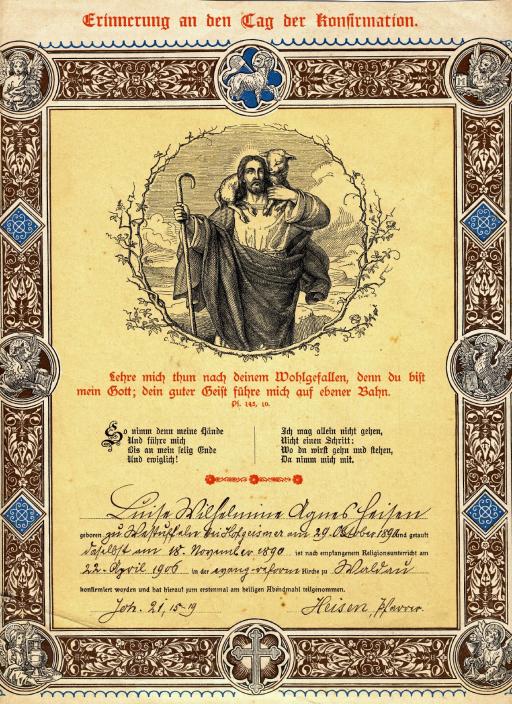 Erinnerung an den Tag der Konfirmation.
Lehre mich thun nach deinem Wohlgefallen, denn du bist
mein Gott; dein guter Geist führe mich auf ebener Bahn.
Ps. 143, 10.
So nimm denn meine Hände
Und führe mich
Bis an mein selig Ende
Und ewiglich!
Ich mag allein nicht gehen,
Nicht einen Schritt:
Wo du wirst gehn und stehen,
Da nimm mich mit.
Luise Wilhelmine Agnes Heisen
geboren zu Westuffeln bei Hofgeismar am 29. Oktober 1890 und getauft
daselbst am 18. November 1890 ist nach empfangenem Religionsunterricht am
22. April 1906 in der evang-reform Kirche zu Waldau
konfirmiert worden und hat hierauf zum erstenmal am heiligen Abendmahl teilgenommen.
Joh. 21, 15-19
Heisen, Pfarrer.